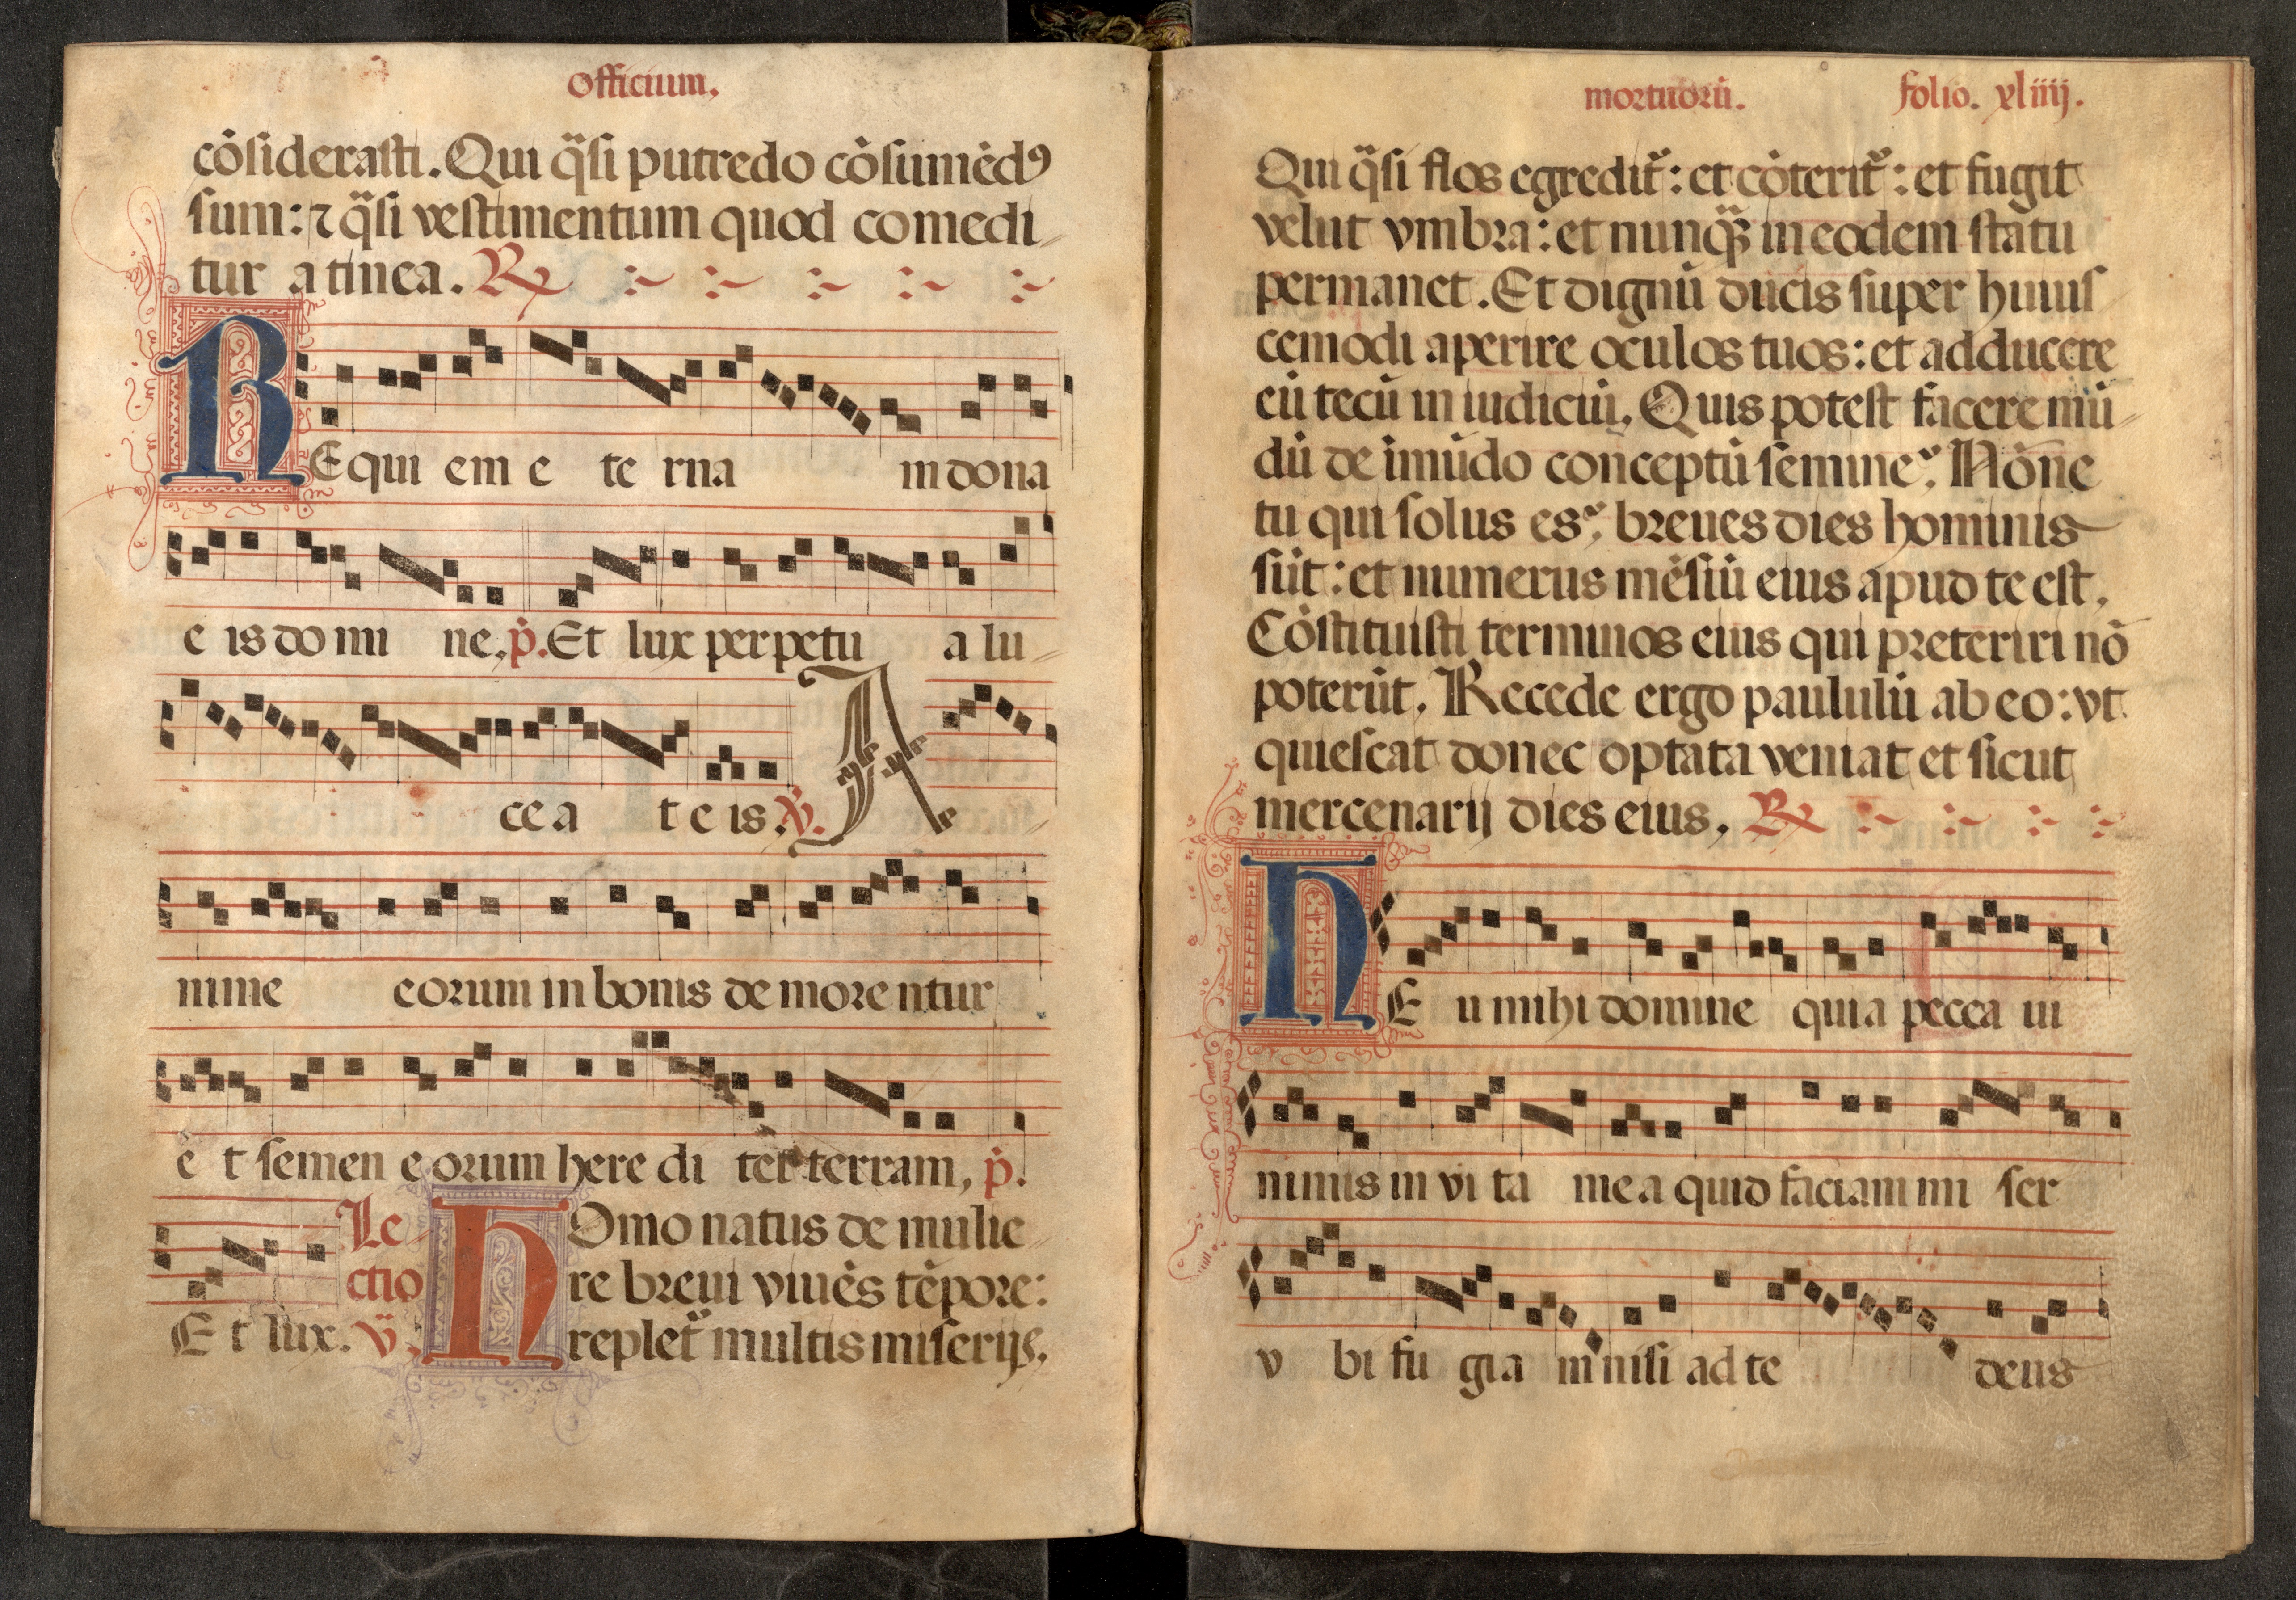 Officium.
cōsiderasti. Qui q̄si putredo cōsumēdꝰ
sum: ⁊ q̄si vestimentum quod comedi-
tur a tinea. ℟
REqui em e te rna in dona
e is do mi ne. p̄. Et lux perpetu a lu-
ce a t e is. ℣. A-
nime eorum in bonis de more ntur
e t semen e orum here di tēt terram, p̄.
Le-
ctio
Et lux. ℣.
HOmo natus de mulie-
re breui viuēs tēpore:
replet᷑ multis miserijs.
mortuorū. folio. xliiij.
Qui q̄si flos egredit᷑: et cōterit᷑: et fugit
velut vmbra: et nunq̄ꝫ in eodem statu
permanet. Et dignū ducis super huius-
cemodi aperire oculos tuos: et adducere
eū tecū in iudiciū. Quis potest facere mū-
dū de īmūdo conceptū semine? Nōne
tu qui solus es? breues dies hominis
sūt: et numerus mēsiū eius apud te est.
Cōstituisti terminos eius qui preteriri nō
poterūt. Recede ergo paululū ab eo: vt
quiescat donec optata veniat et sicut
mercenarij dies eius. ℟
HE u mihi domine quia pecca ui
nimis in vi ta mea quid faciam mi ser
v bi fu gia m nisi ad te deus